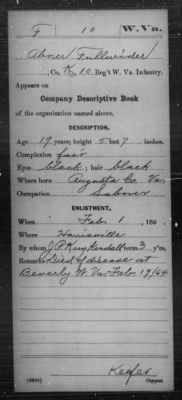 F 10 W. Va.
Abner Fullwinder
, Co. K, 10 Reg't W. Va. Infantry.
Appears on
Company Descriptive Book
of the organization named above.
DESCRIPTION.
Age 19 years; height 5 feet 7 inches.
Complexion fair
Eyes black; hair black
Where born Augusta Co. Va.
Occupation Laborer
ENLISTMENT.
When Feb 1, 186
Where Harrisville
By whom J. P. Kuykendall term 3 y'rs.
Remarks: Died of disease at
Beverly W. Va. Feb. 19/64
Keefe
Copyist.